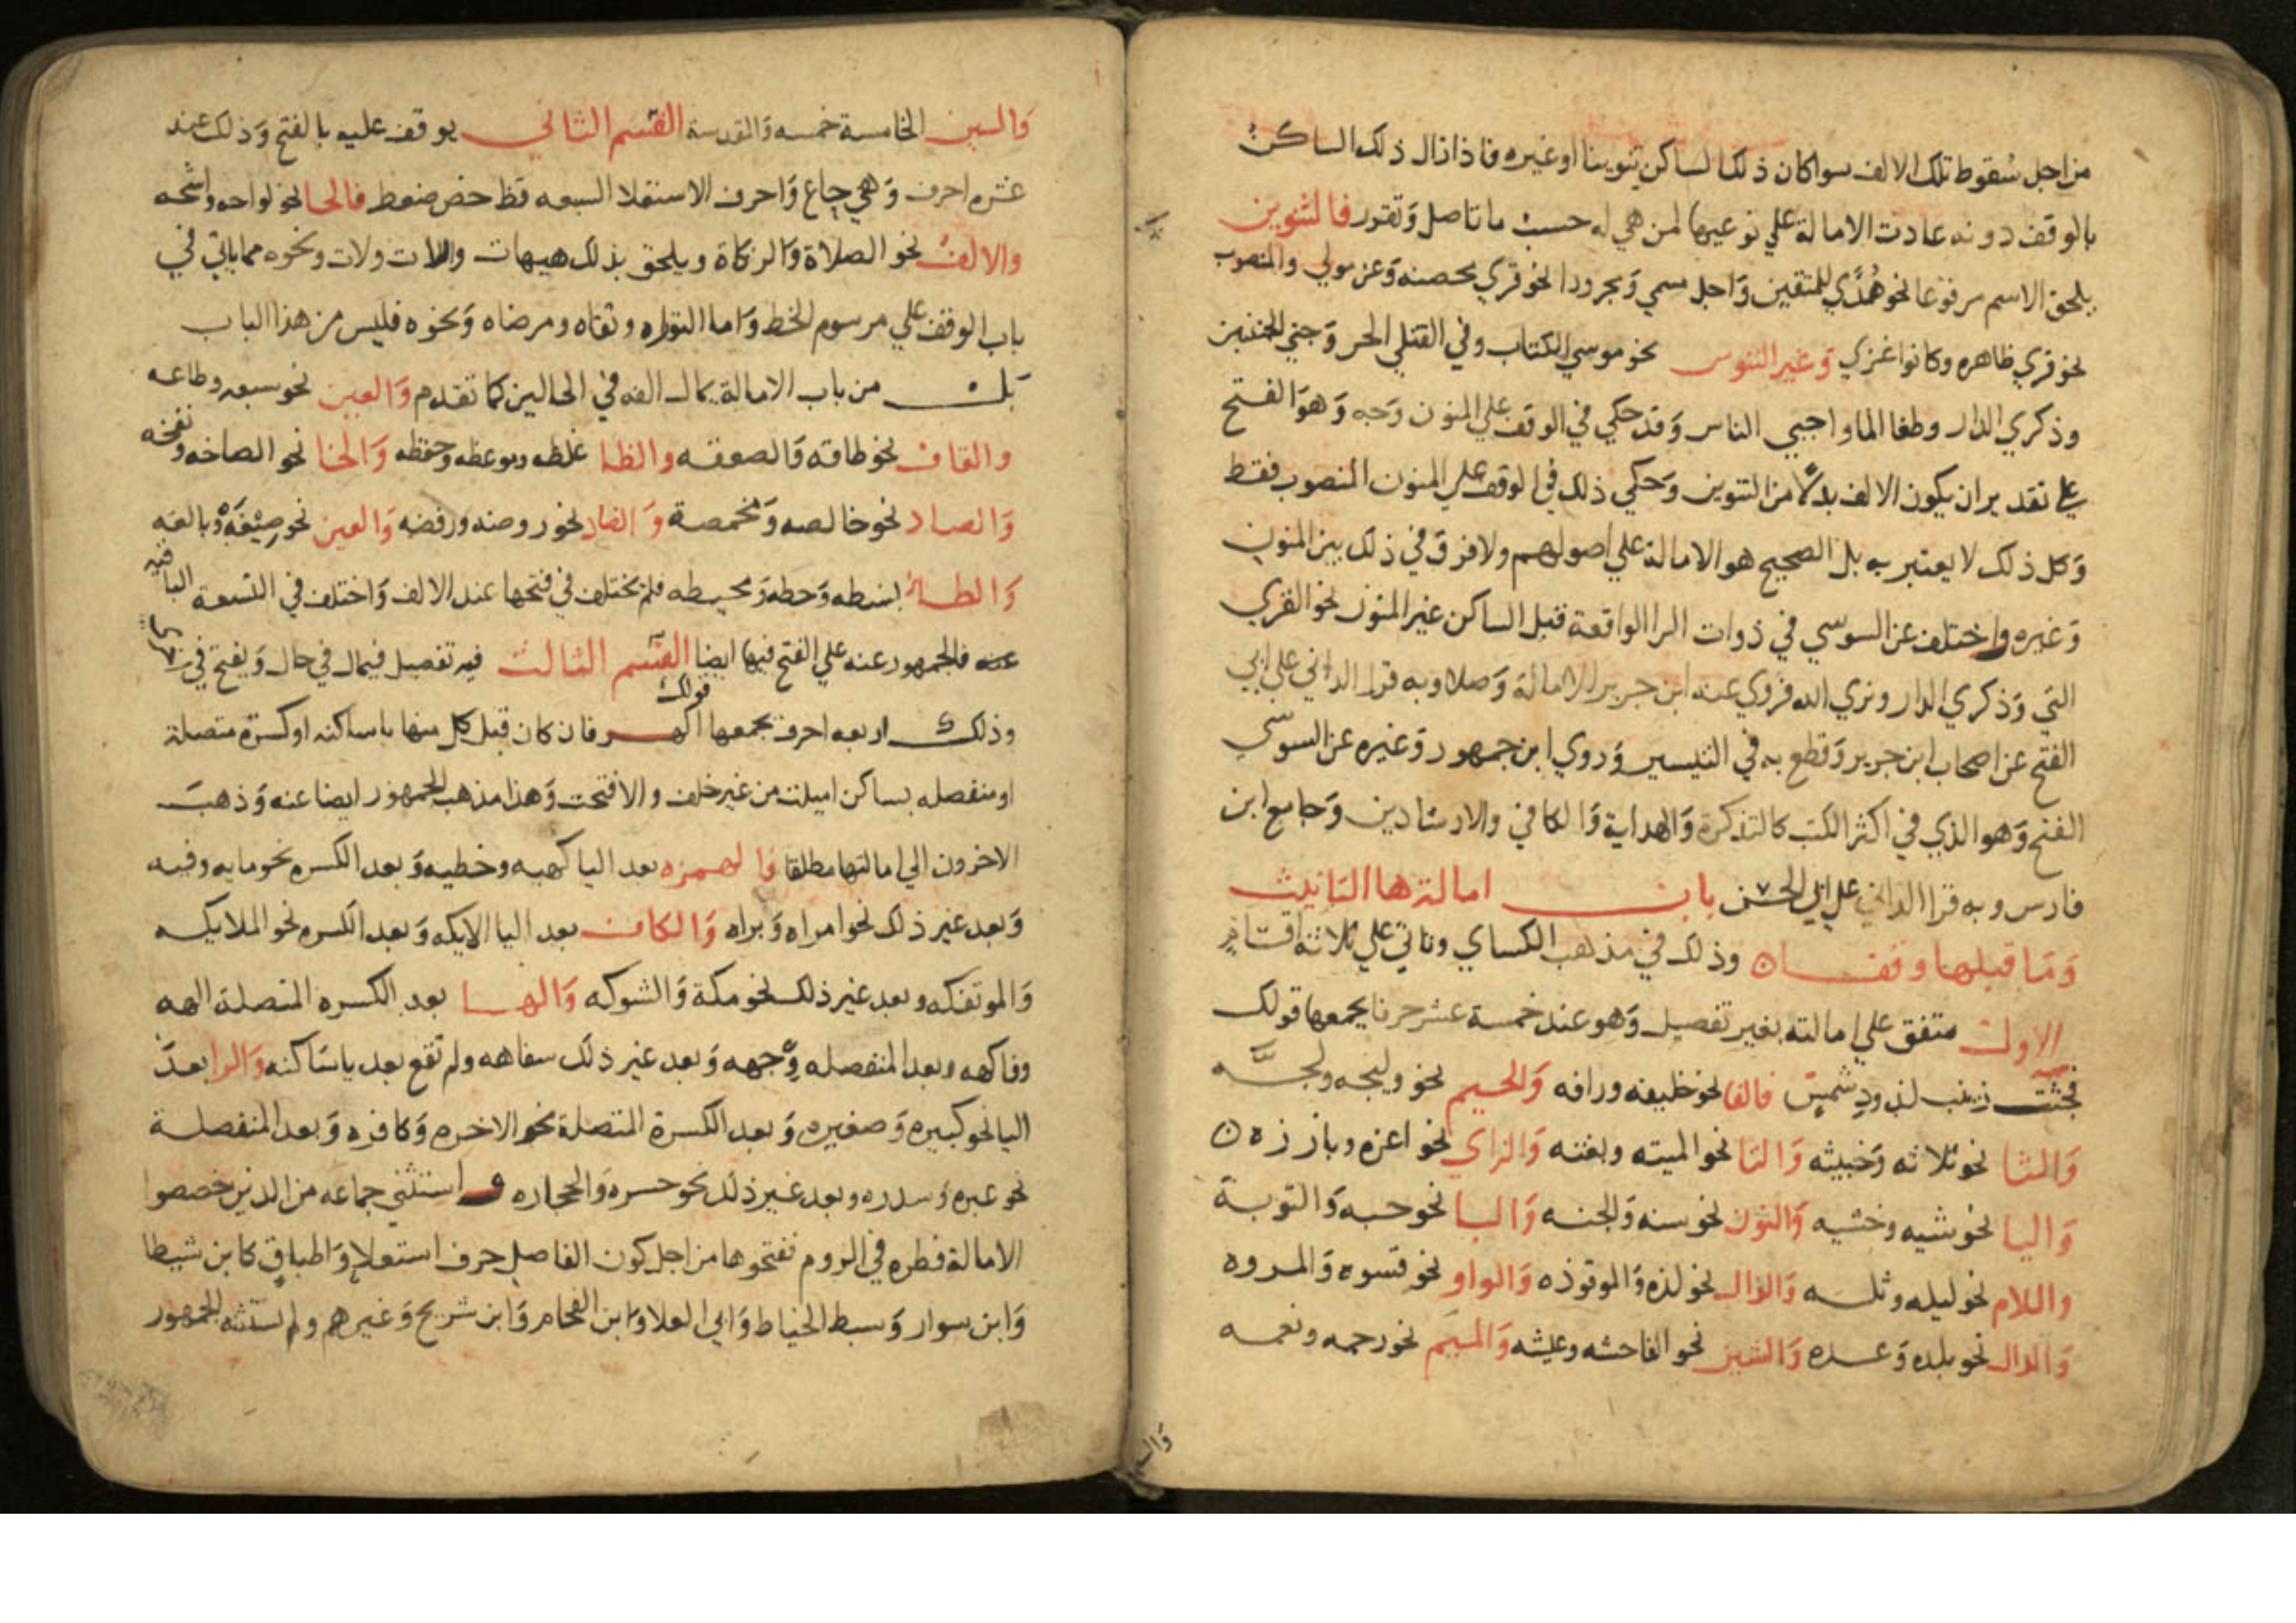 من اجل سُقوط تلك الالف سوا كان ذلك الساكن تنوينا او غيره فاذا زال ذلك الساكنُ
بالوقف دونه عادت الامالة علي نوعيها لمن هي له حسب ما تاصل وَتقرر فالتنوين
يلحق الاسم مرفوعا نحو هُدًي للمتقين وَاجل مسمي وَمجرورا نحو قري محصنه وَعن مولي والمنصوب
نحو قري ظاهره وكانوا غزي وَغير التنوين نحو موسي الكتاب وفي القتلي الحر وَجني الجنتين
وذكري الدار وطغا الما واحيي الناس وَقد حكي في الوقف علي المنون وَجه وَهوَ الفتح
علي تقدير ان يكون الالف بدلًا من التنوين وَحكي ذلك في الوقف علي المنون المنصوب فقط
وَكل ذلك لا يعتبر به بل الصحيح هو الامالة علي اصولهم ولا فرق في ذلك بين المنون
وَغيره واختلف عن السوسي في ذوات الرا الواقعة قبل الساكن غير المنون نحو القري
التي وَذكري الدار ونري الله فروي عنه ابن جرير الامالة وَصلا وبه قرا الداني علي ابي
الفتح عن اصحاب ابن جرير وَقطع به في التيسير وَروي ابن جمهور وَغيره عن السوسي
الفتح وَهو الذي في اكثر الكتب كالتذكرة وَالهداية وَالكافي والارشادين وَجامع ابن
فارس وبه قرا الداني علي ابي الحسن باب امالة ها التانيث
وَمَا قبلها وقفا ن وذلك في مذهب الكساي وتاتي علي ثلاثة اقسام
الاول متفق علي امالته بغير تفصيل وَهو عند خمسة عشر حرفا يجمعها قولك
فجثت زينب لذود شمس فالفا نحو خليفه ورافه وَالجيم نحو وليجه ولجه
وَالثا نحو ثلاثه وَخبيثه وَالتا نحو الميته وبغته وَالزاي نحو اعزه وبارزه ن
وَاليا نحو شيه وخشيه وَالنون نحو سنه وَالجنه وَالبا نحو حبه وَالتوبة
واللام نحو ليله وثله وَالذال نحو لذه وَالموقوذه وَالواو نحو قسوه وَالمروه
وَالدال نحو بلده وَعده وَالشين نحو الفاحشه وعيشه وَالميم نحو رحمه ونعمه
وَالسين
وَالسين الخامسة خمسه وَالمقدسة القسم الثاني يوقف عليه بالفتح وَذلك عند
عشره احرف وَهي حاع وَاحرف الاستعلا السبعه قظ خص ضغط فالحا نحو لواحه واشحه
والالف نحو الصلاة وَالزكاة ويلحق بذلك هيهات واللات ولات ونحوه مما ياتي في
باب الوقف علي مرسوم الخط وَاما التوراه وتقاه ومرضاه وَنحوه فليس من هذا الباب
بَل من باب الامالة يمال الفه في الحالين كما تقدم وَالعين نحو سبعه وطاعه
والقاف نحو طاقه وَالصعقه والظا غلظه وموعظه وحفظه وَالخا نحو الصاخه ونفخه
وَالصاد نحو خالصه وَمخمصة وَالضاد نحو روضه ورفضه وَالغين نحو صِبْغَهْ وبالغه
وَالطا بسطه وَحطه وَمحيطه فلم يختلف في فتحها عند الالف وَاختلف في التسعه الباقيه
عنه فالجمهور عنه علي الفتح فيها ايضا القسم الثالث فيه تفصيل فيمال في حال وَيفتح في
وذلك اربعه احرف يجمعها قولك اكهر فان كان قبل كل منها يا ساكنه او كسرة متصلة
او منفصله بساكن اميلت من غير خلف والا فتحت وَهذا مذهب الجمهور ايضا عنه وَذهبَ
الاخرون الي امالتها مطلقا فالهمزه بعد اليا كهيه وخطيه وَبعد الكسره نحو مايه وفيه
وَبعد غير ذلك نحو امراه وَبراه وَالكاف بعد اليا الايكه وَبعد الكسره نحو الملايكه
وَالموتفكه وبعد غير ذلك نحو مكة وَالشوكه وَالها بعد الكسره المتصلة الهه
وفاكهه وبعد المنفصله وِجهه وَبعد غير ذلك سفاهه ولم تقع بعد يا ساكنه وَالرا بعدَ
اليا نحو كبيره وَصغيره وَبعد الكسرة المتصلة نحو الاخره وَكافره وَبعد المنفصلة
نحو عبره وَسدره وبعد غير ذلك نحو حسره وَالحجاره واستثني جماعه من الذين خصصوا
الامالة فطره في الروم ففتحوها من اجل كون الفاصل حرف استعلاء وَاطباق كابن شيطا
وَابن سوار وَسبط الخياط وَابي العلا وَابن الفحام وَابن شريح وَغيرهم ولم يستثنه الجمهور